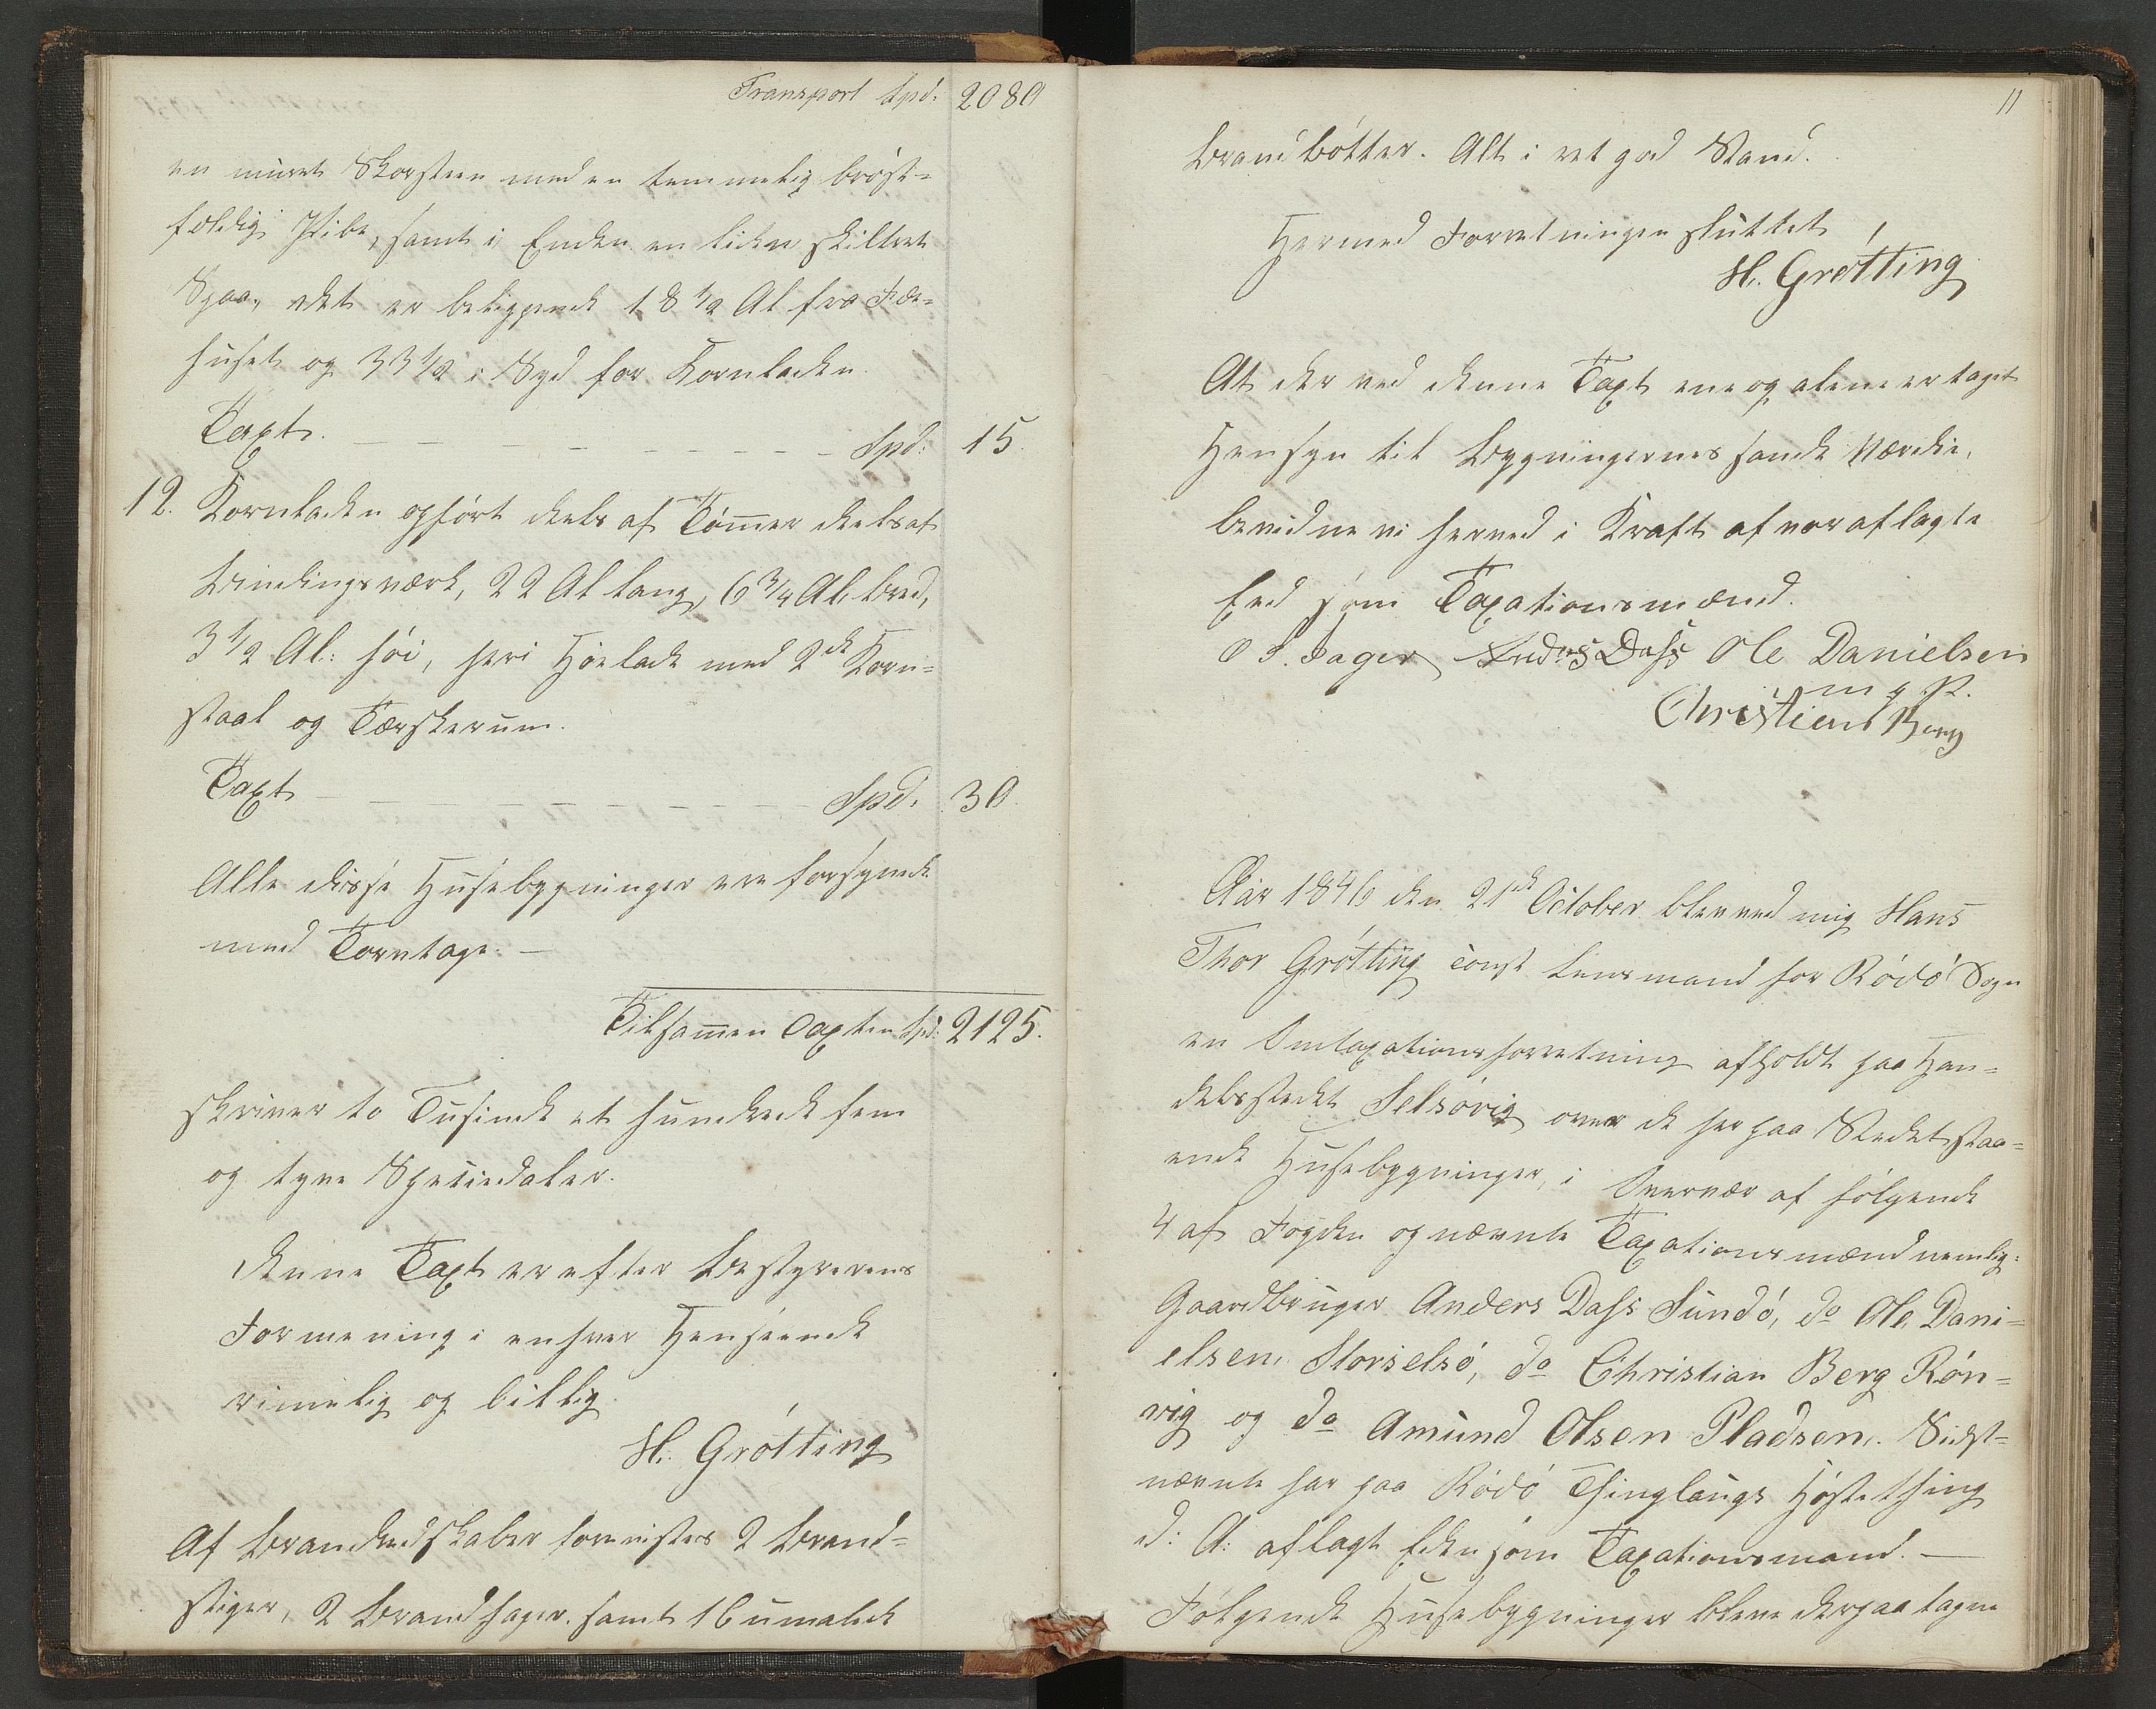 Transport Spd: 2080
en muret Skorsteen med en temmelig bröst-
fældig Pibe, samt i Enden en liden skilleet
det er beliggende 18 1/2 Al fra Fæ-
huset og 33 1/2 i Syd for Kornladen.
Taxt. Spd: 15.
12. Kornladen opfört deels af Tömmer deels af
Bindingsværk, 22 Al lang, 6 3/4 Al. bred,
3 1/2 Al: höi, heri Höelade med 2de Korn-
staal og Tærskerum.
Taxt Spd. 30.
Alle disse Husebygninger ere forsynede
med Torvtage. —
Tilsammen Taxten Spd: 2125.
skriver to Tusinde et hundrede fem
og tyve Speciedaler.
Denne Taxt er efter Bestyrerens
Formening i enhver Henseende
rimelig og billig.
H. Grötting
Af Brandredskaber forevistes 2 Brand-
stiger, 2 Brandhager samt 16 umalede
11
Brandbötter. Alt i ret god Stand.
Hermed Forretningen sluttet
H. Grötting
At der ved denne Taxt ene og alene er taget
Hensyn til Bygningernes sande Værdie,
bevidne vi herved i Kraft af vor aflagte
Eed som Taxationsmænd.
O S. Jager Anders Dass Ole Danielsen
m g P.
Christian Berg
Aar 1846 den 21de October blev ved mig Hans
Thor Grötting const Lensmand for Rödö Sogn
en Omtaxationsforretning afholdt paa Han-
delsstedet Selsövig over de her paa Stedet staa-
ende Husebygninger, i Overvær af fölgende
4 af Fogden opnævnte Taxationsmænd nemlig:
Gaardbruger Anders Dass Sundö, do Ole Dani-
elsen Storselsö, do Christian Berg Rön-
vig og do Amund Olsen Pladsen. Sidst-
nævnte har paa Rödö Thinglaugs Hösttething
d: A: aflagt Eden som Taxationsmand. —
Fölgende Husebygninger bleve derpaa tagne